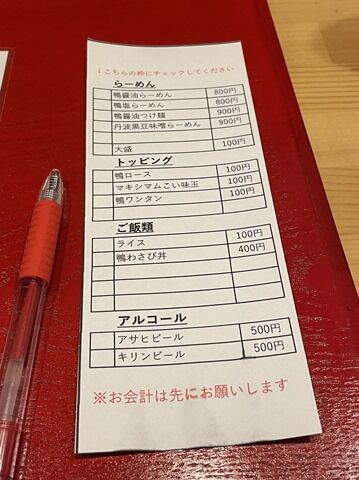 ↓こちらの枠にチェックしてください
らーめん
鴨醤油らーめん 800円
鴨塩らーめん 800円
鴨醤油つけ麺 900円
丹波黒豆味噌らーめん 900円
大盛 100円
トッピング
鴨ロース 100円
マキシマムこい味玉 100円
鴨ワンタン 100円
ご飯類
ライス 100円
鴨わさび丼 400円
アルコール
アサヒビール 500円
キリンビール 500円
※お会計は先にお願いします